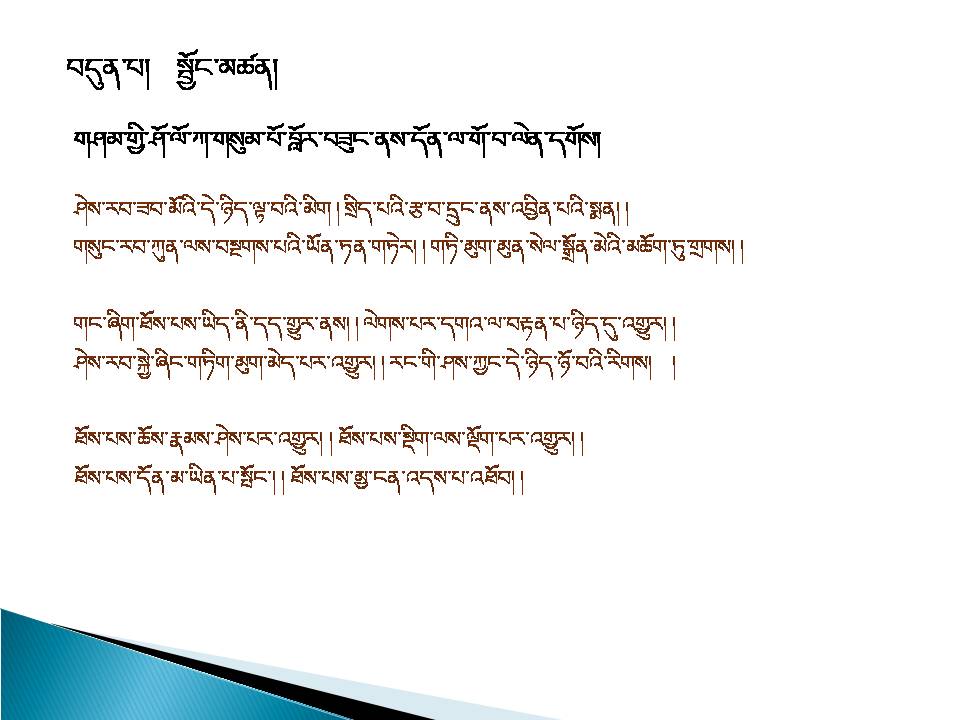 བདུན་པ།   སྦྱོང་མཚན།
གཤམ་གྱི་ཤོ་ལོ་ཀ་གསུམ་པོ་བློར་བཟུང་ནས་དོན་ལ་གོ་བ་ལེན་དགོས།
ཤེས་རབ་ཟབ་མོའི་དེ་ཉིད་ལྟ་བའི་མིག །སྲིད་པའི་རྩ་བ་དྲུང་ནས་འབྱིན་པའི་སྨན། །
གསུང་རབ་ཀུན་ལས་བསྔགས་པའི་ཡོན་ཏན་གཏེར། །གཏི་མུག་མུན་སེལ་སྒྲོན་མེའི་མཆོག་ཏུ་གྲགས། །
གང་ཞིག་ཐོས་པས་ཡིད་ནི་དད་གྱུར་ནས། །ལེགས་པར་དགའ་ལ་བརྟན་པ་ཉིད་དུ་འགྱུར། །
ཤེས་རབ་སྐྱེ་ཞིང་གཏིག་མུག་མེད་པར་འགྱུར། །རང་གི་ཤས་ཀྱང་དེ་ཉིད་ཉོ་བའི་རིགས།   །
ཐོས་པས་ཆོས་རྣམས་ཤེས་པར་འགྱུར། །ཐོས་པས་སྡིག་ལས་ལྡོག་པར་འགྱུར། །
ཐོས་པས་དོན་མ་ཡིན་པ་སྤོང་། །ཐོས་པས་མྱ་ངན་འདས་པ་འཐོབ། །